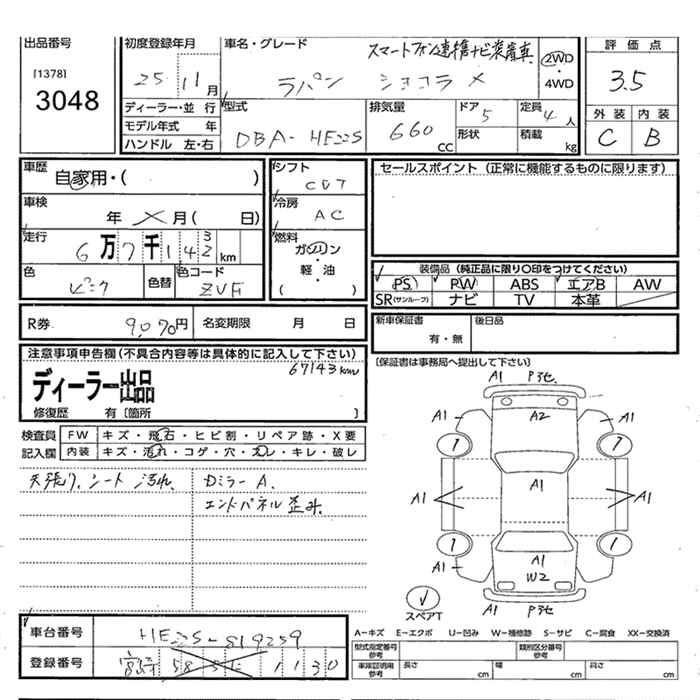 出品番号
[1378]
3048
初度登録年月
25 11月
車名・グレード
スマートフォン連携ナビ装着車
ラパン ショコラ X
2WD
・
4WD
評価点
3.5
外装 内装
C B
ディーラー・並行
モデル年式 年
ハンドル 左・右
型式
DBA-HE22S
排気量
660
CC
ドア
5
形状
定員
4人
積載
kg
車歴
自家用・( )
車検
年 X月( 日)
走行
6万7千142km
3
色
ピンク
色替
色コード
ZVF
シフト
CVT
冷房
AC
燃料
ガソリン
・
軽・油
( )
セールスポイント (正常に機能するものに限ります)
装備品 (純正品に限り〇印をつけてください)
PS PW ABS エアB AW
SR(サンルーフ) ナビ TV 本革
R券 9,070円 名変期限 月 日
新車保証書
有・無
後日品
(保証書は事務局へ提出して下さい)
注意事項申告欄(不具合内容等は具体的に記入して下さい)
67143km
ディーラー出品
修復歴 有〔箇所 〕
検査員
記入欄
FW キズ・飛石・ヒビ割・リペア跡・X要
内装 キズ・汚れ・コゲ・穴・スレ・キレ・破レ
天張り、シート 汚れ、
DミラーA.
エンドパネル歪み.
A1 Pヌセ
A1 A2 A1
1 1
A1 A1 A1
1 1
A1 A1 A1
W2
スペアT
A1 Pヌセ
A-キズ E-エクボ U-凹み W-補修跡 S-サビ C-腐食 XX-交換済
車台番号 HE22S-819259
登録番号 宮崎 58 1130
型式指定番号
参考
類別区分番号
参考
車庫証明用
参考
長さ cm 幅 cm 高さ cm